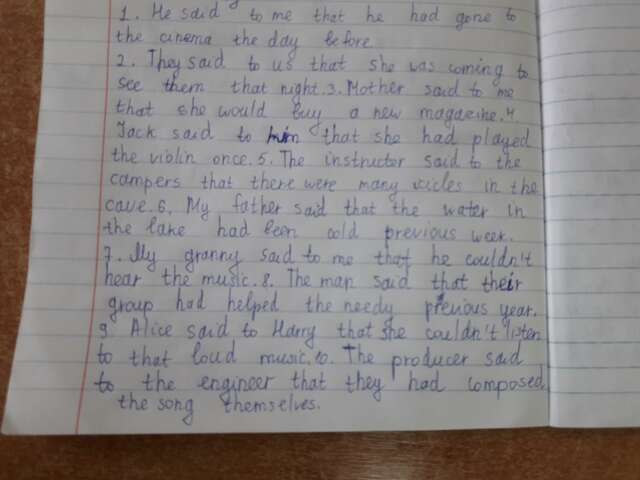 1. He said to me that he had gone to
the cinema the day before.
2. They said to us that she was coming to
see them that night. 3. Mother said to me
that she would buy a new magazine. 4.
Jack said to him that she had played
the violin once. 5. The instructor said to the
campers that there were many icicles in the
cave. 6. My father said that the water in
the lake had been cold previous week.
7. My granny said to me that he couldn't
hear the music. 8. The man said that their
group had helped the needy previous year.
9. Alice said to Harry that she couldn't listen
to that loud music. 10. The producer said
to the engineer that they had composed
the song themselves.